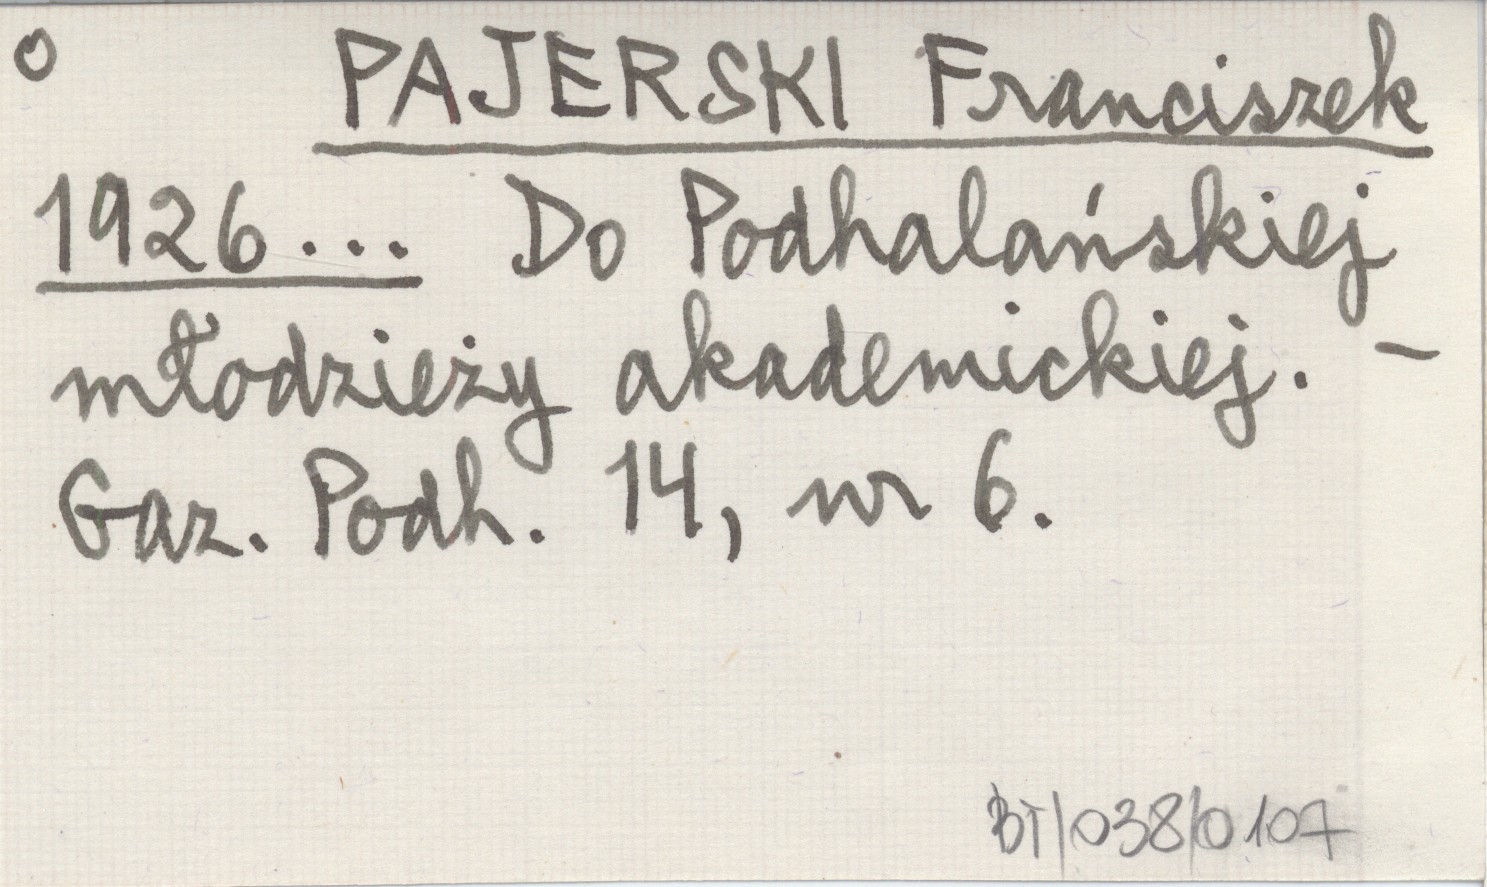 o PAJERSKI Franciszek
1926... Do Podhalańskiej
młodzieży akademickiej. –
Gaz. Podh. 14, nr 6.
BT/038/0107